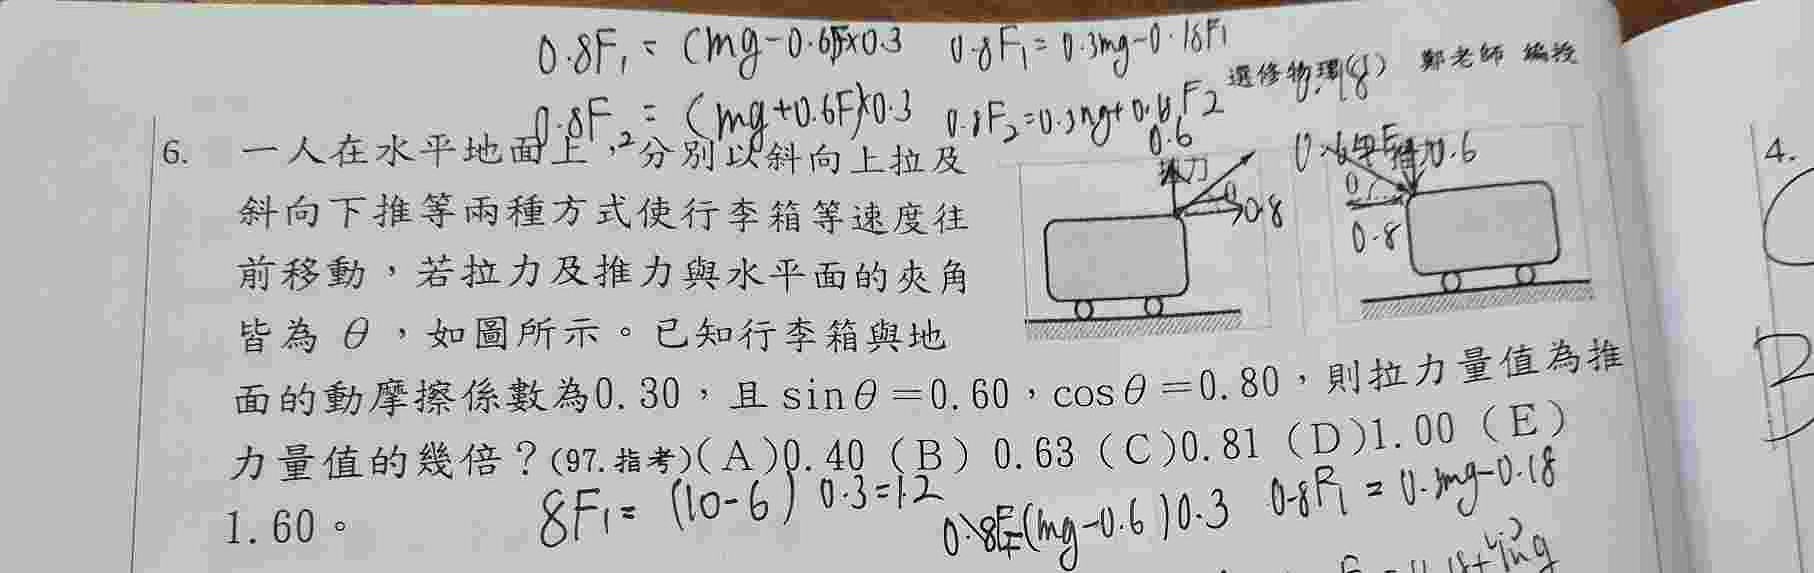 0.8F₁ = (mg-0.6F)×0.3 0.8F₁ = 0.3mg-0.18F₁
選修物理(8) 鄭老師 編授
0.8F₂ = (mg+0.6F)×0.3 0.8F₂=0.3mg+0.18F₂
6. 一人在水平地面上,分別以斜向上拉及
斜向下推等兩種方式使行李箱等速度往
前移動,若拉力及推力與水平面的夾角
皆為 θ,如圖所示。已知行李箱與地
面的動摩擦係數為0.30,且 sinθ=0.60,cosθ=0.80,則拉力量值為推
力量值的幾倍?(97.指考)(A)0.40 (B) 0.63 (C)0.81 (D)1.00 (E)
1.60。
0.6
θ
0.8
0.6
θ
0.8
8F₁= (10-6) 0.3=1.2
0.8F=(mg-0.6)0.3 0.8F₁ = 0.3mg-0.18
4.